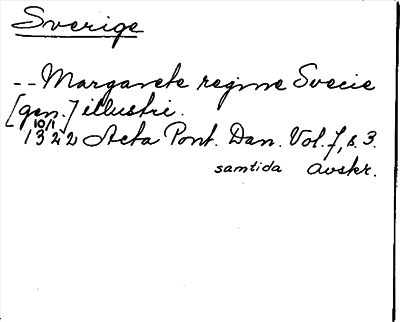 Sverige
-- Margarete regine Svecie
[gen.] illustri.
10/1
1322 Acta Pont. Dan. Vol. 7, s. 3.
samtida Avskr.